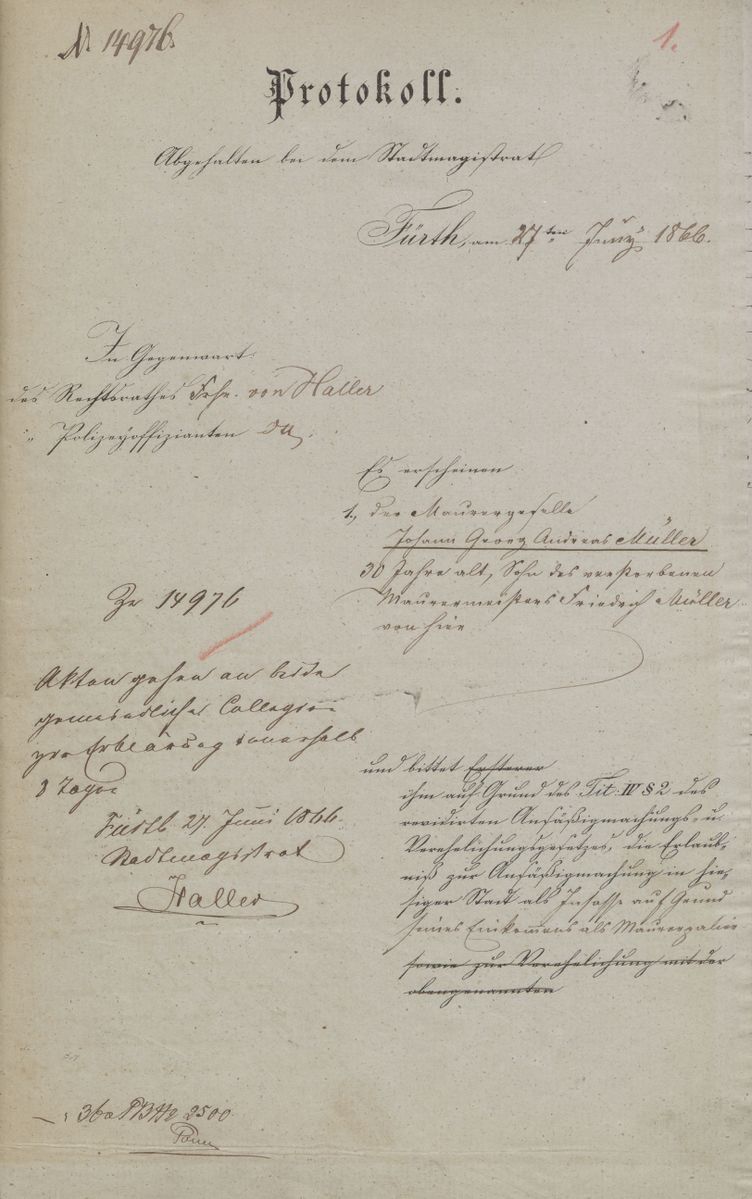 N. 14976.
1.
Protokoll.
Abgehalten bei dem Stadtmagistrat
Fürth, am 27ten Juny 1866.
In Gegenwart:
des Rechtsrathes Frhr. von Haller
" Polizeyoffizianten
Es erscheinen
1., der Maurergeselle
Johann Georg Andreas Müller
30 Jahre alt, Sohn des verstorbenen
Maurermeisters Friedrich Müller
von hier
Zr 14976
Akten gehen an beide
gemeindliche Collegien
zur Erklärung innerhalb
3 Tagen
Fürth 27. Juni 1866.
Stadtmagistrat
Haller
und bittet Ersterer
ihm auf Grund des Tit. IV § 2 des
revidirten Ansäßigmachungs- u.
Verehelichungsgesetzes, die Erlaub-
niß zur Ansäßigmachung in hie-
siger Stadt als Insasse auf Grund
seines Einkommens als Maurerpalier
sowie zur Verehelichung mit der
obengenannten
2500